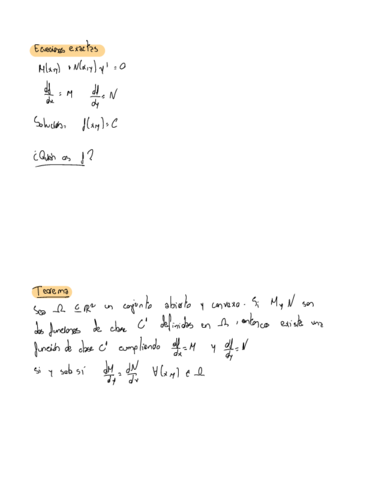 Ecuaciones exactas
M(x,y) + N(x,y) y' = 0
df/dx = M df/dy = N
Solución: f(x,y) = C
¿Quién es f?
Teorema
Sea Ω ⊆ ℝ² un conjunto abierto y convexo. Si M y N son
dos funciones de clase C¹ definidas en Ω, entonces existe una
función de clase C¹ cumpliendo df/dx = M y df/dy = N
si y solo si dM/dy = dN/dx ∀(x,y) ∈ Ω